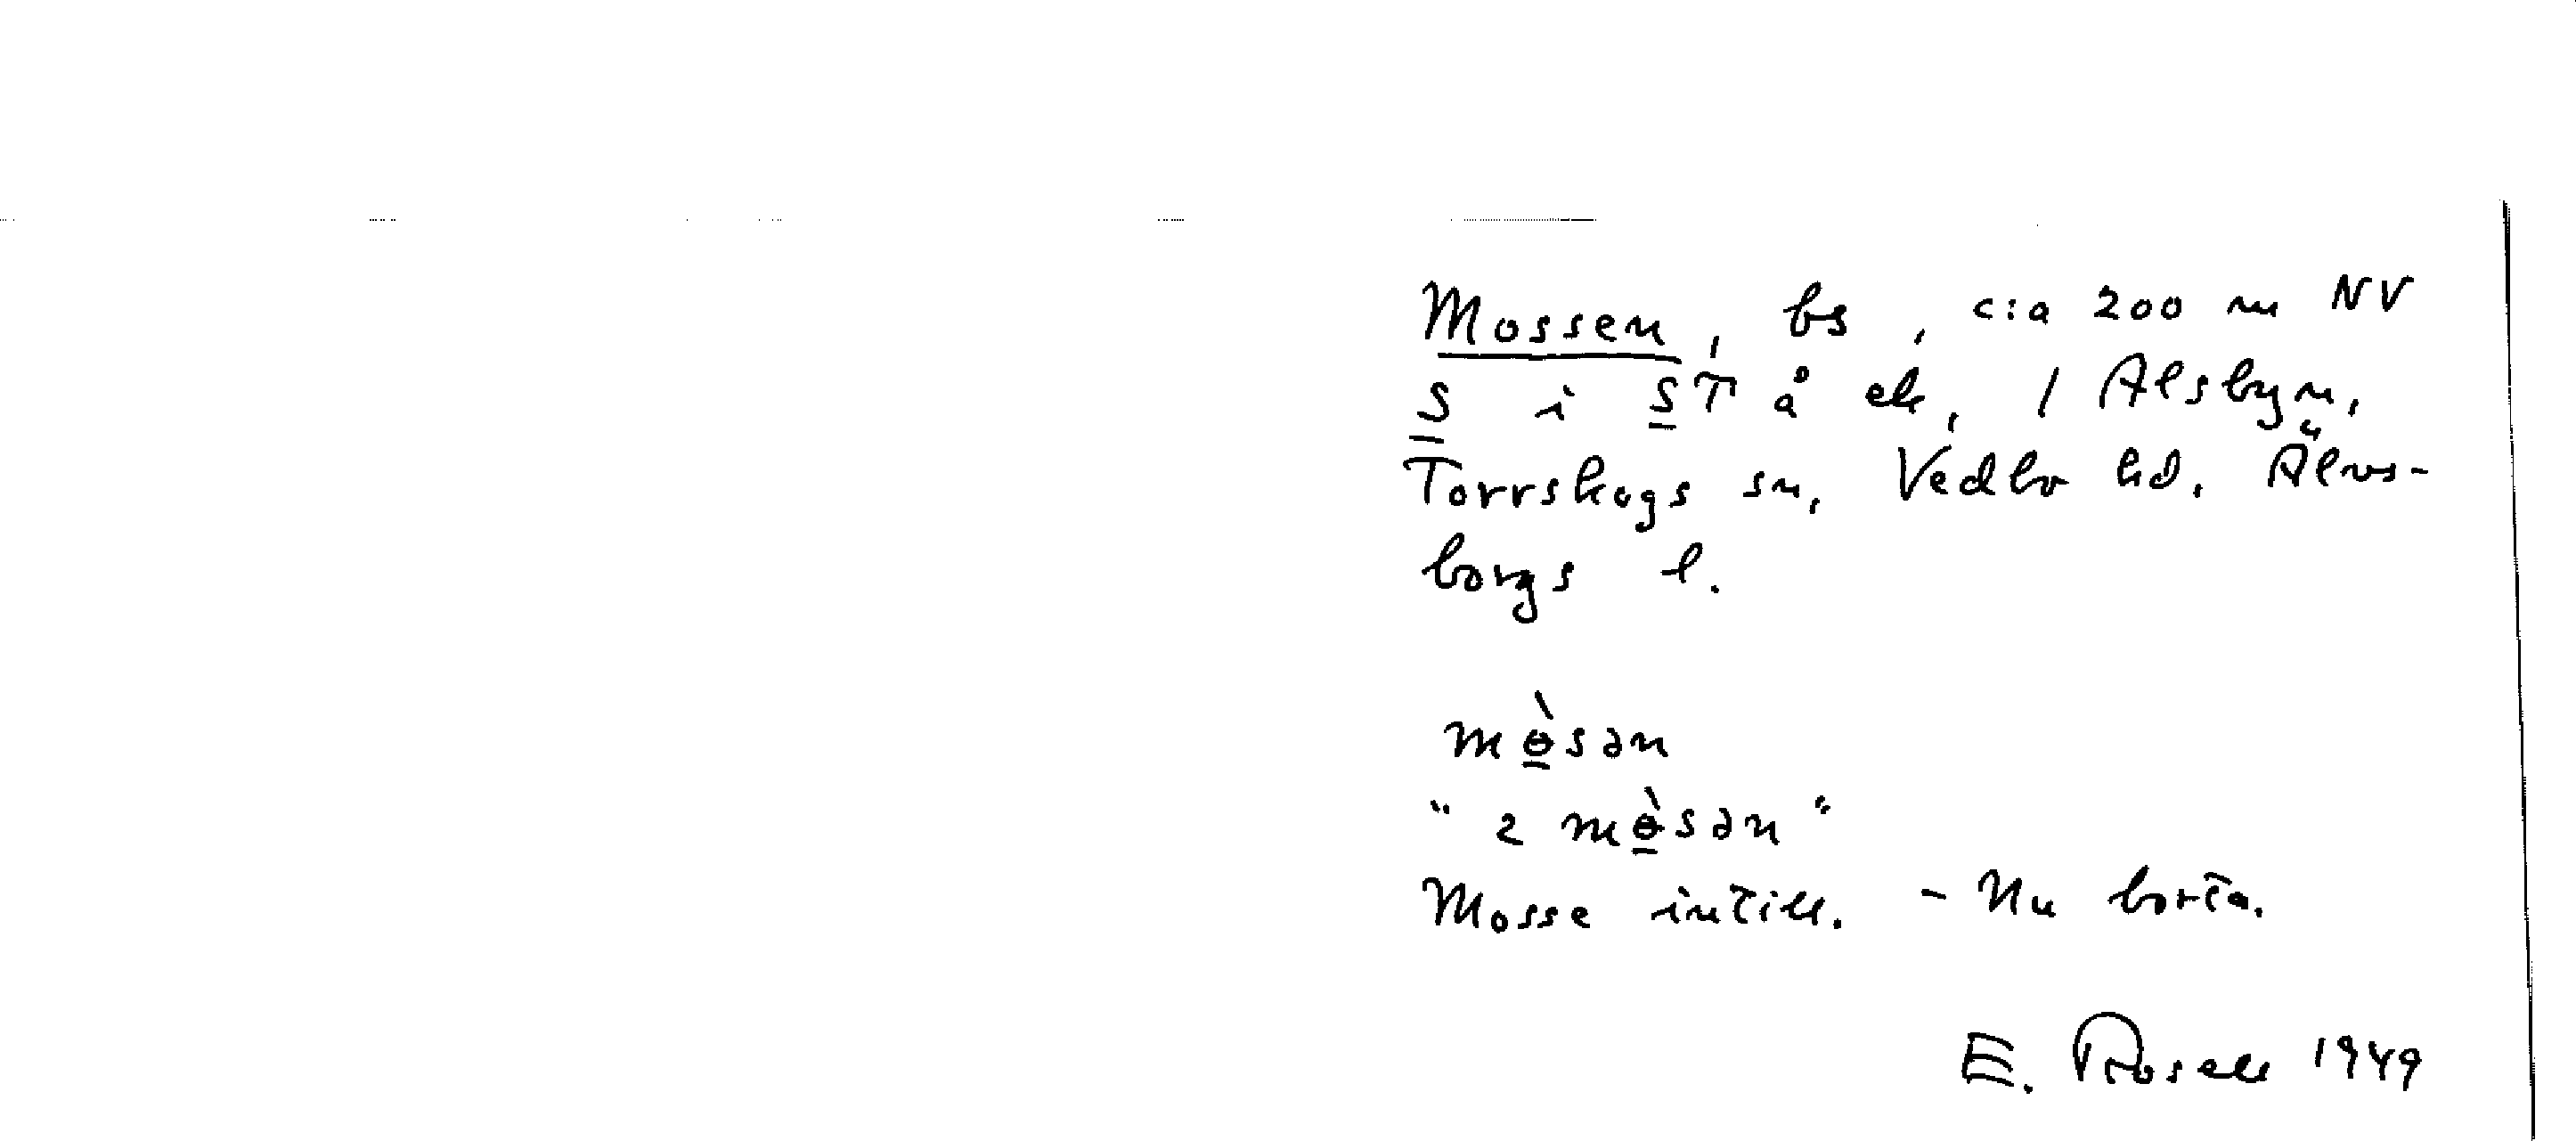 Mossen, bs, c:a 200 m NV
S i ST å ek, 1 Alsbyn,
Torrskogs sn, Vedbo hd. Älvs-
borgs l.
mɵ̀sən
" 2 mɵ̀sən "
Mosse intill. - Nu borta.
E. Rosell 1949